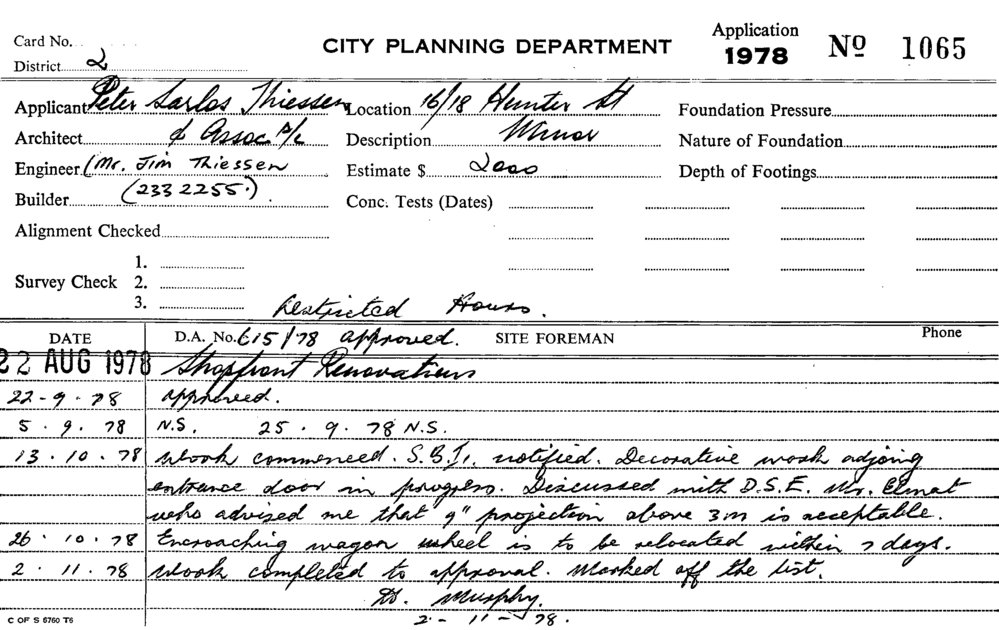 Card No.
District 2
CITY PLANNING DEPARTMENT
Application
1978 No 1065
Applicant Peter Sarlos Thiessen Location 16/18 Hunter St Foundation Pressure
Architect & Assoc P/L Description Minor Nature of Foundation
Engineer (Mr. Jim Thiessen Estimate $ 2000 Depth of Footings
Builder (233 2255.) Conc. Tests (Dates)
Alignment Checked
1.
Survey Check 2.
3.
Restricted Hours.
DATE D.A. No. 615/78 approved. SITE FOREMAN Phone
22 AUG 1978 Shopfront Renovations
22-9-78 approved.
5.9.78 N.S. 25.9.78 N.S.
13.10.78 Work commenced. S.B.I. notified. Decorative work adjoing
entrance door in progress. Discussed with D.S.E. Mr.
who advised me that 9" projection above 3m is acceptable.
26.10.78 Encroaching wagon wheel is to be relocated within 7 days.
2.11.78 Work completed to approval. Marked off the list.
Murphy.
2-11-78.
C OF S 6760 T6